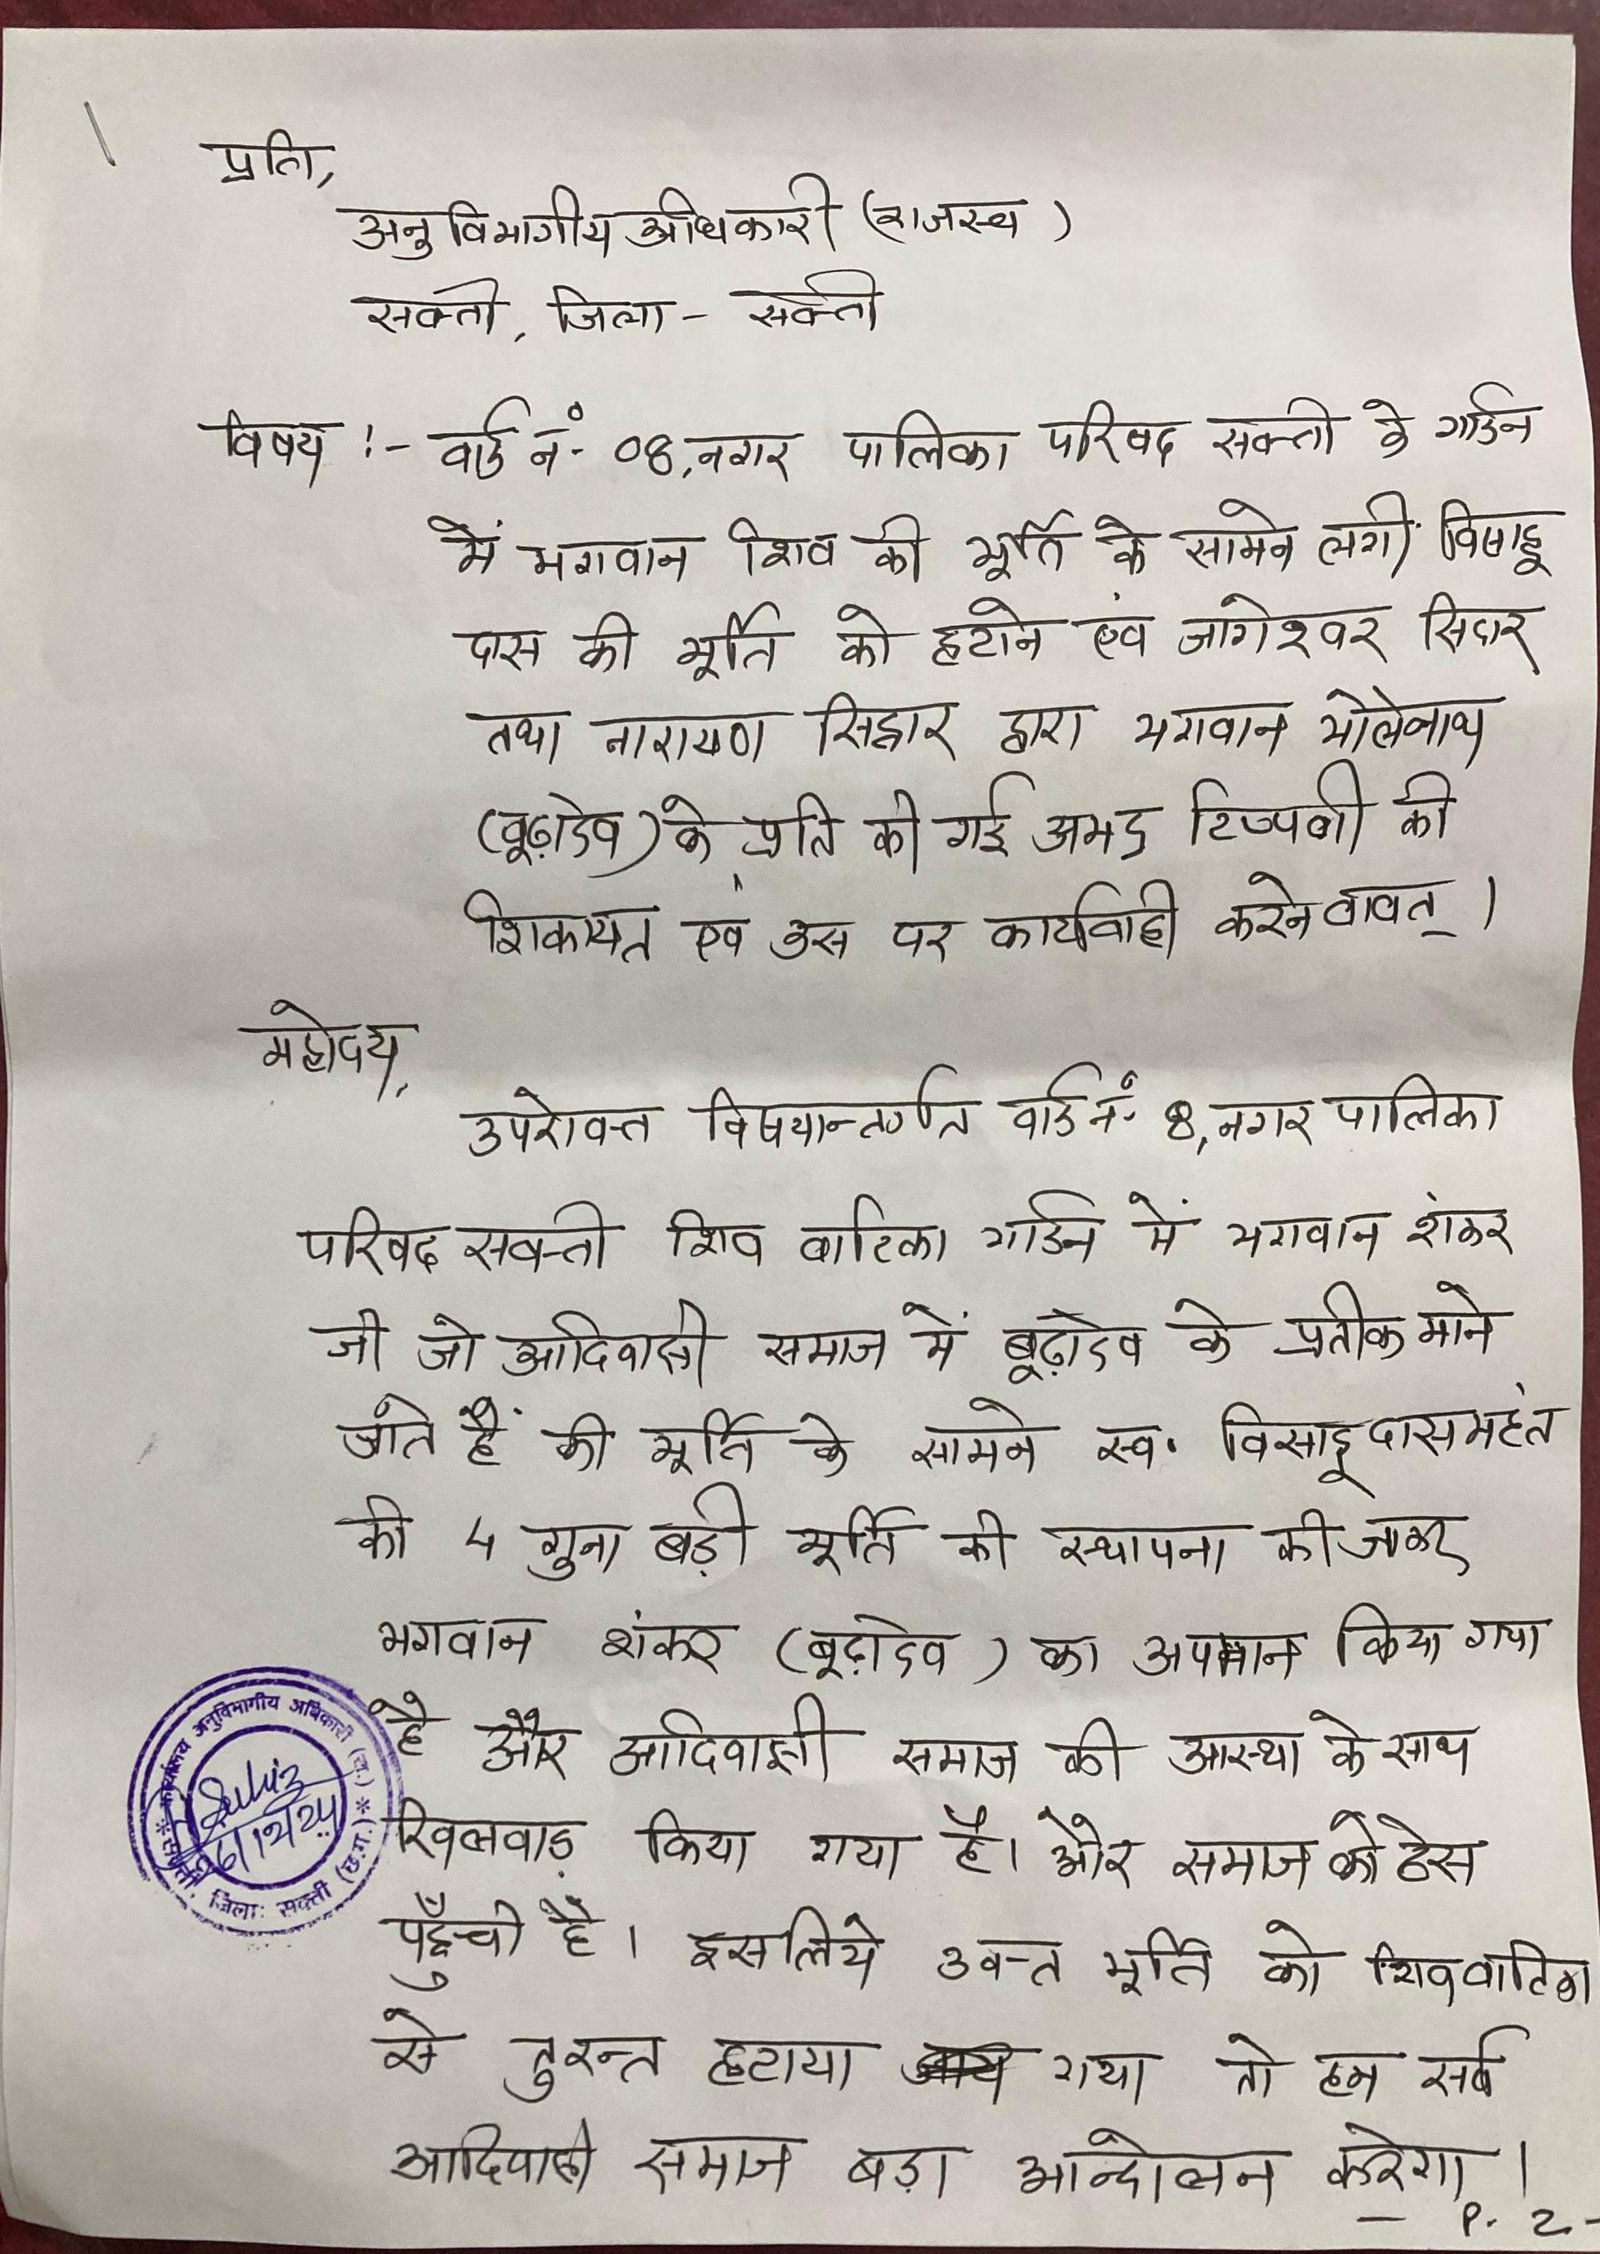 प्रति,
अनुविभागीय अधिकारी (राजस्व)
सक्ती, जिला - सक्ती
विषय :- वार्ड नं. 08, नगर पालिका परिषद सक्ती के गार्डन
में भगवान शिव की मूर्ति के सामने लगी बिसाहू
दास की मूर्ति को हटाने एवं जागेश्वर सिदार
तथा नारायण सिदार द्वारा भगवान भोलेनाथ
(बूढ़ादेव) के प्रति की गई अभद्र टिप्पणी की
शिकायत एवं उस पर कार्यवाही करने बावत् ।
महोदय,
उपरोक्त विषयान्तर्गत वार्ड नं. 8, नगर पालिका
परिषद सक्ती शिव वाटिका गार्डन में भगवान शंकर
जी जो आदिवासी समाज में बूढ़ादेव के प्रतीक माने
जाते हैं की मूर्ति के सामने स्व. बिसाहू दास महंत
की 4 गुना बड़ी मूर्ति की स्थापना की जाकर
भगवान शंकर (बूढ़ादेव) का अपमान किया गया
है और आदिवासी समाज की आस्था के साथ
खिलवाड़ किया गया है। और समाज को ठेस
पहुँची है। इसलिये उक्त मूर्ति को शिववाटिका
से तुरन्त हटाया गया तो हम सर्व
आदिवासी समाज बड़ा आन्दोलन करेगा।
- P. 2 -
कार्यालय अनुविभागीय अधिकारी (रा.)
जिला: सक्ती (छ.ग.)